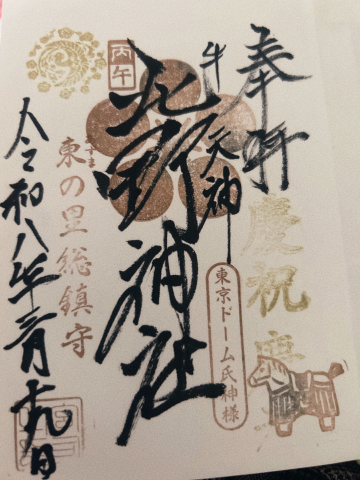 奉拝
慶祝
牛天神
北野神社
東京ドーム氏神様
丙午
東の里総鎮守
令和八年二月十九日